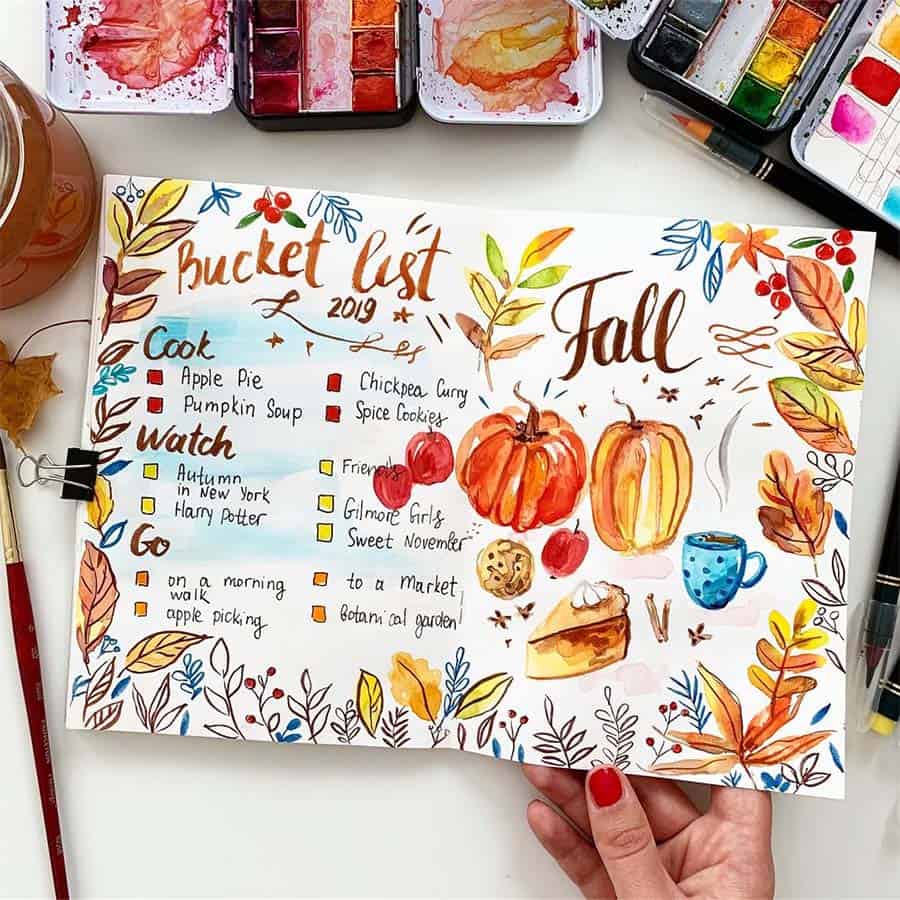 Bucket list
2019
Cook
Apple Pie
Pumpkin Soup
Chickpea Curry
Spice Cookies
Watch
Autumn
in New York
Harry Potter
Friends
Gilmore Girls
Sweet November
Go
on a morning
walk
apple picking
to a Market
Botanical garden
Fall